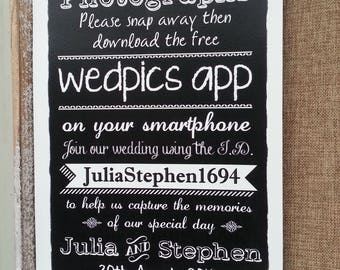 Please snap away then
download the free
wedpics app
on your smartphone
Join our wedding using the I.D.
JuliaStephen1694
to help us capture the memories
of our special day
Julia AND Stephen